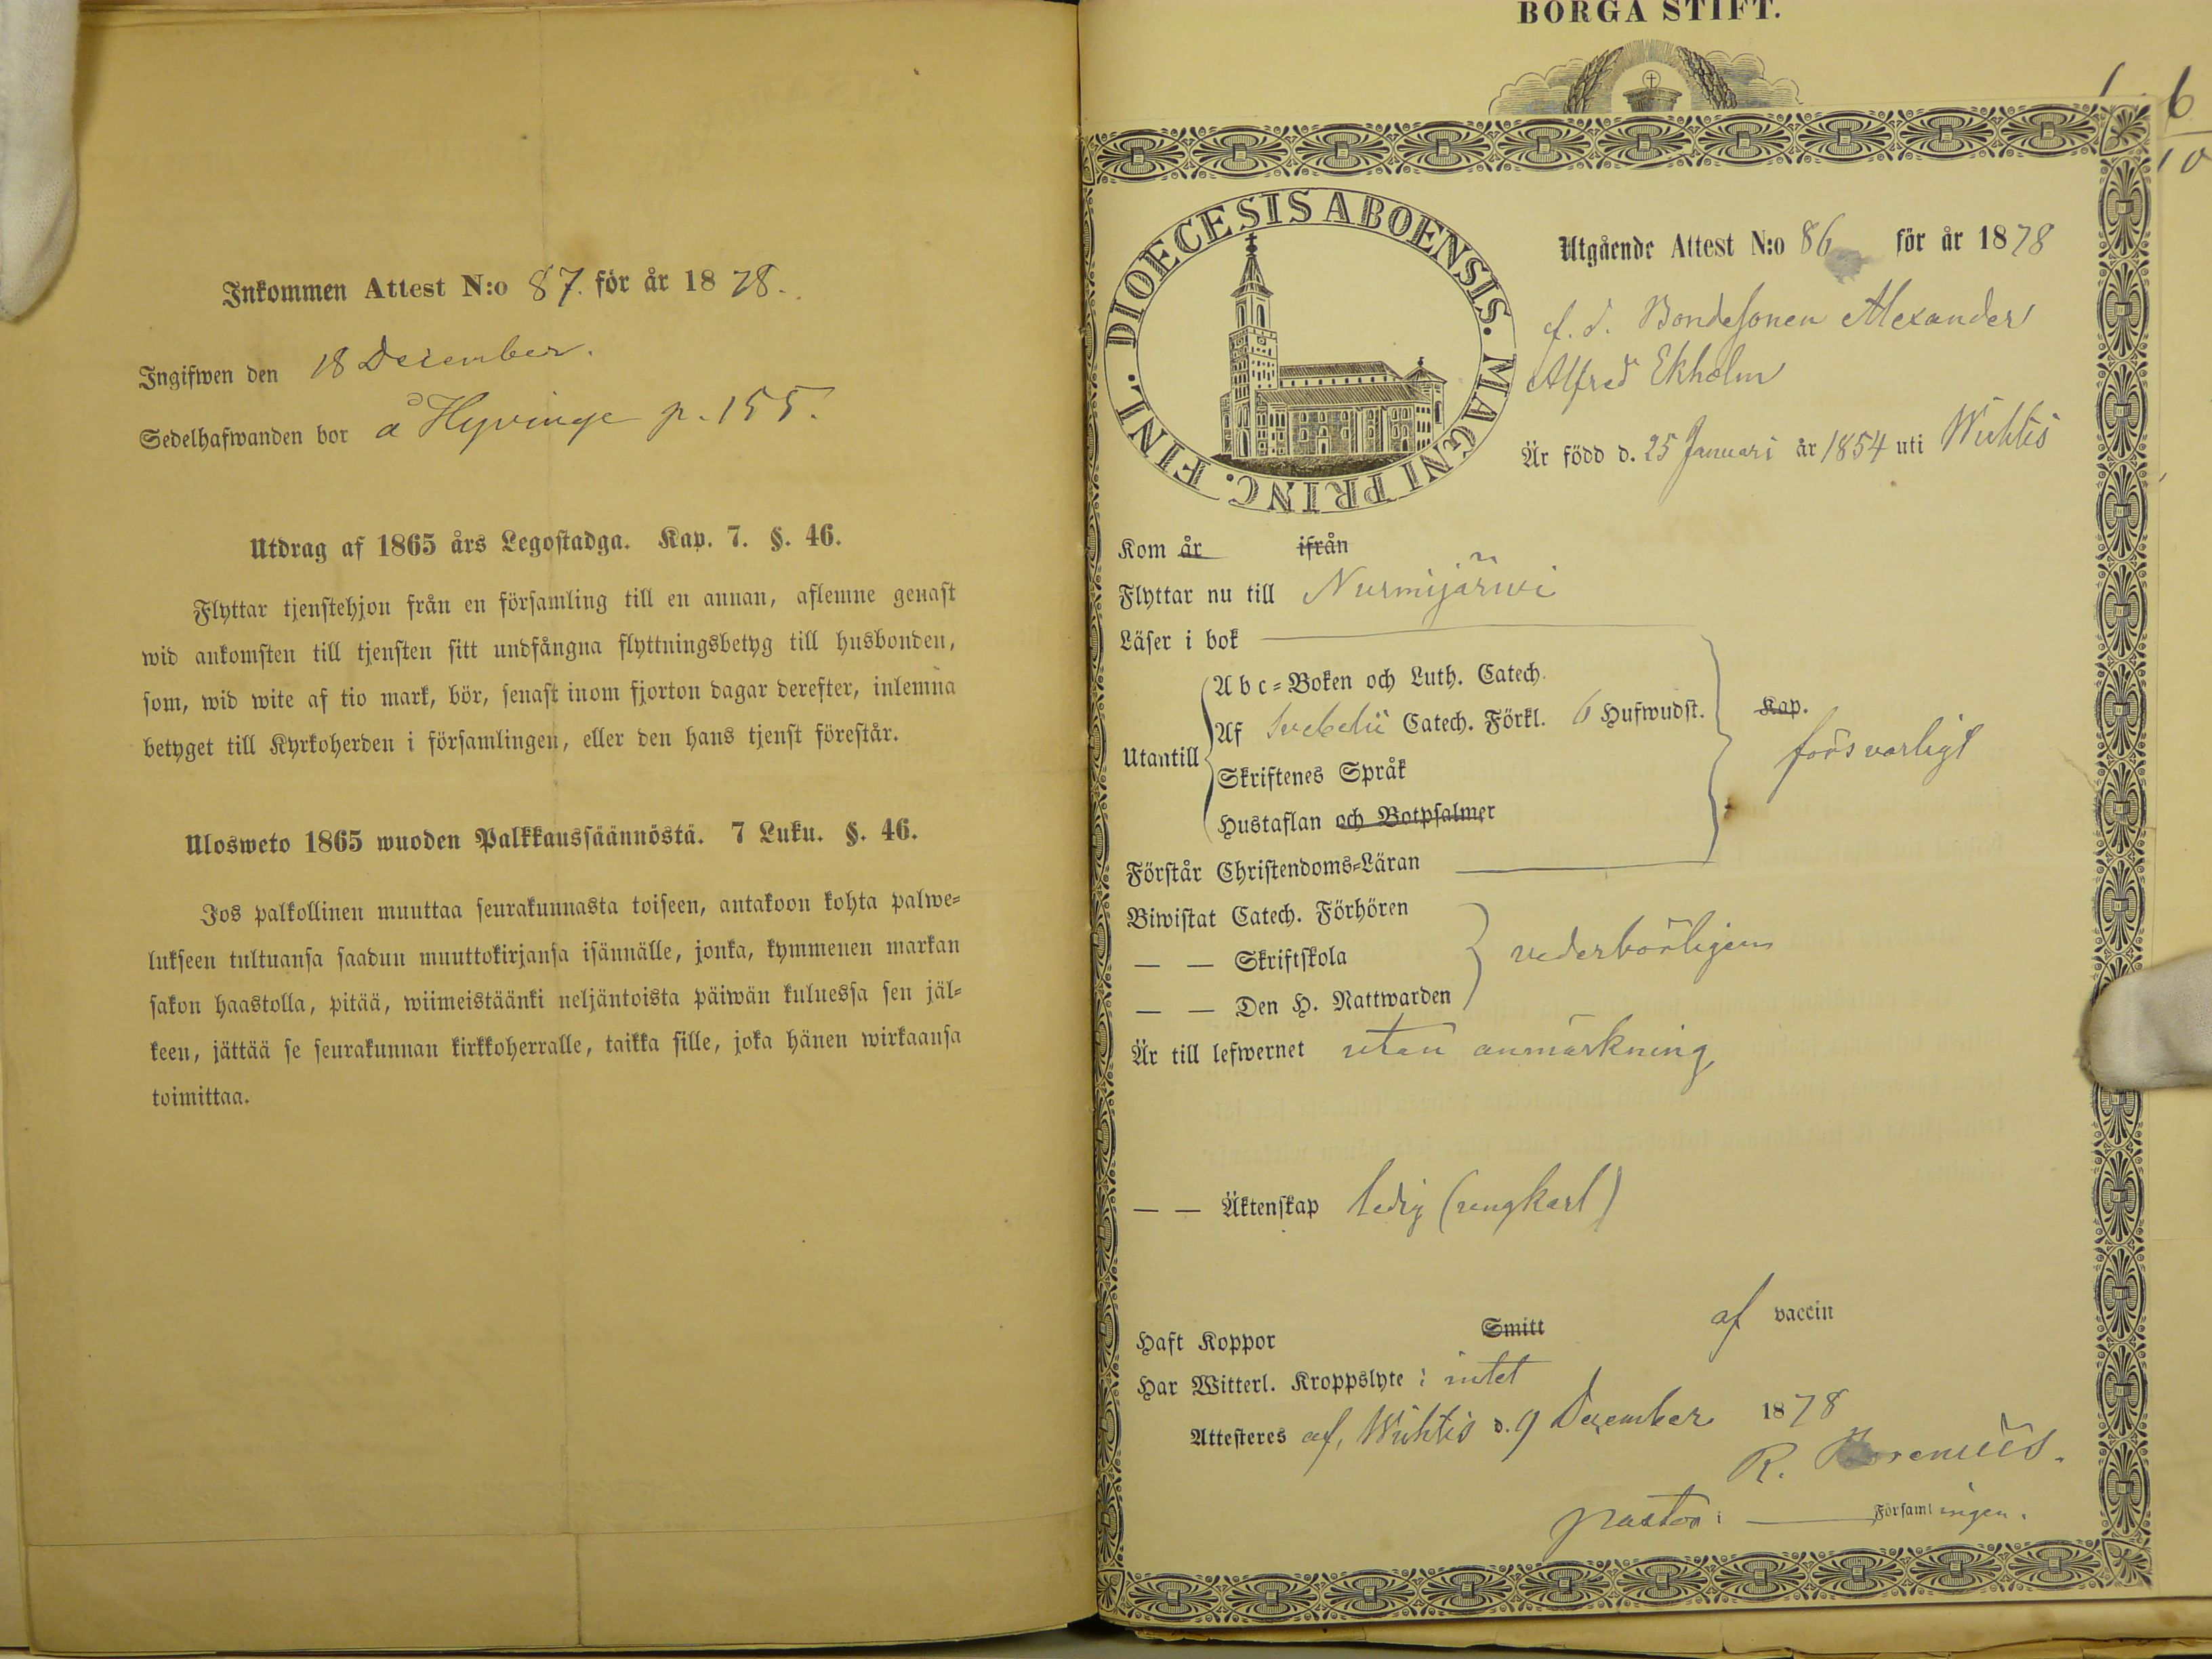 Inkommen Attest N:o 87. för år 1878.
Ingifwen den 18 December.
Sedelhafwanden bor å Hyvinge p. 155.
Utdrag af 1865 års Legostadga. Kap. 7. §. 46.
Flyttar tjenstehjon från en församling till en annan, aflemne genast
wid ankomsten till tjensten sitt undfångna flyttningsbetyg till husbonden,
som, wid wite af tio mark, bör, senast inom fjorton dagar derefter, inlemna
betyget till Kyrkoherden i församlingen, eller den hans tjenst förestår.
Ulosweto 1865 wuoden Palkkaussäännöstä. 7 Luku. §. 46.
Jos palkollinen muuttaa seurakunnasta toiseen, antakoon kohta palwe=
lukseen tultuansa saadun muuttokirjansa isännälle, jonka, kymmenen markan
sakon haastolla, pitää, wiimeistäänki neljäntoista päiwän kuluessa sen jäl=
keen, jättää se seurakunnan kirkkoherralle, taikka sille, joka hänen wirkaansa
toimittaa.
BORGA STIFT.
6
10
DIOECESIS ABOENSIS. MAGNI PRINC. FINL.
Utgående Attest N:o 86 för år 1878
f. d. Bondesonen Alexander
Alfred Ekholm
Är född d. 25 Januari år 1854 uti Wichtis
Kom år ifrån
Flyttar nu till Nurmijärwi
Läser i bok
Abc=Boken och Luth. Catech.
Utantill
Af Svebelii Catech. Förkl. 6 Hufwudst.
Kap.
försvarligt
Skriftenes Språk
Hustaflan och Botpsalmer
Förstår Christendoms=Läran
Biwistat Catech. Förhören
— — Skriftskola
vederbörligen
— — Den H. Nattwarden
Är till lefwernet utan anmärkning
— — Äktenskap ledig (ungkarl)
Haft Koppor Smitt af vaccin
Har Witterl. Kroppslyte: intet
Attesteres af, Wichtis d. 9 December 1878
R.
pastor i Församlingen.